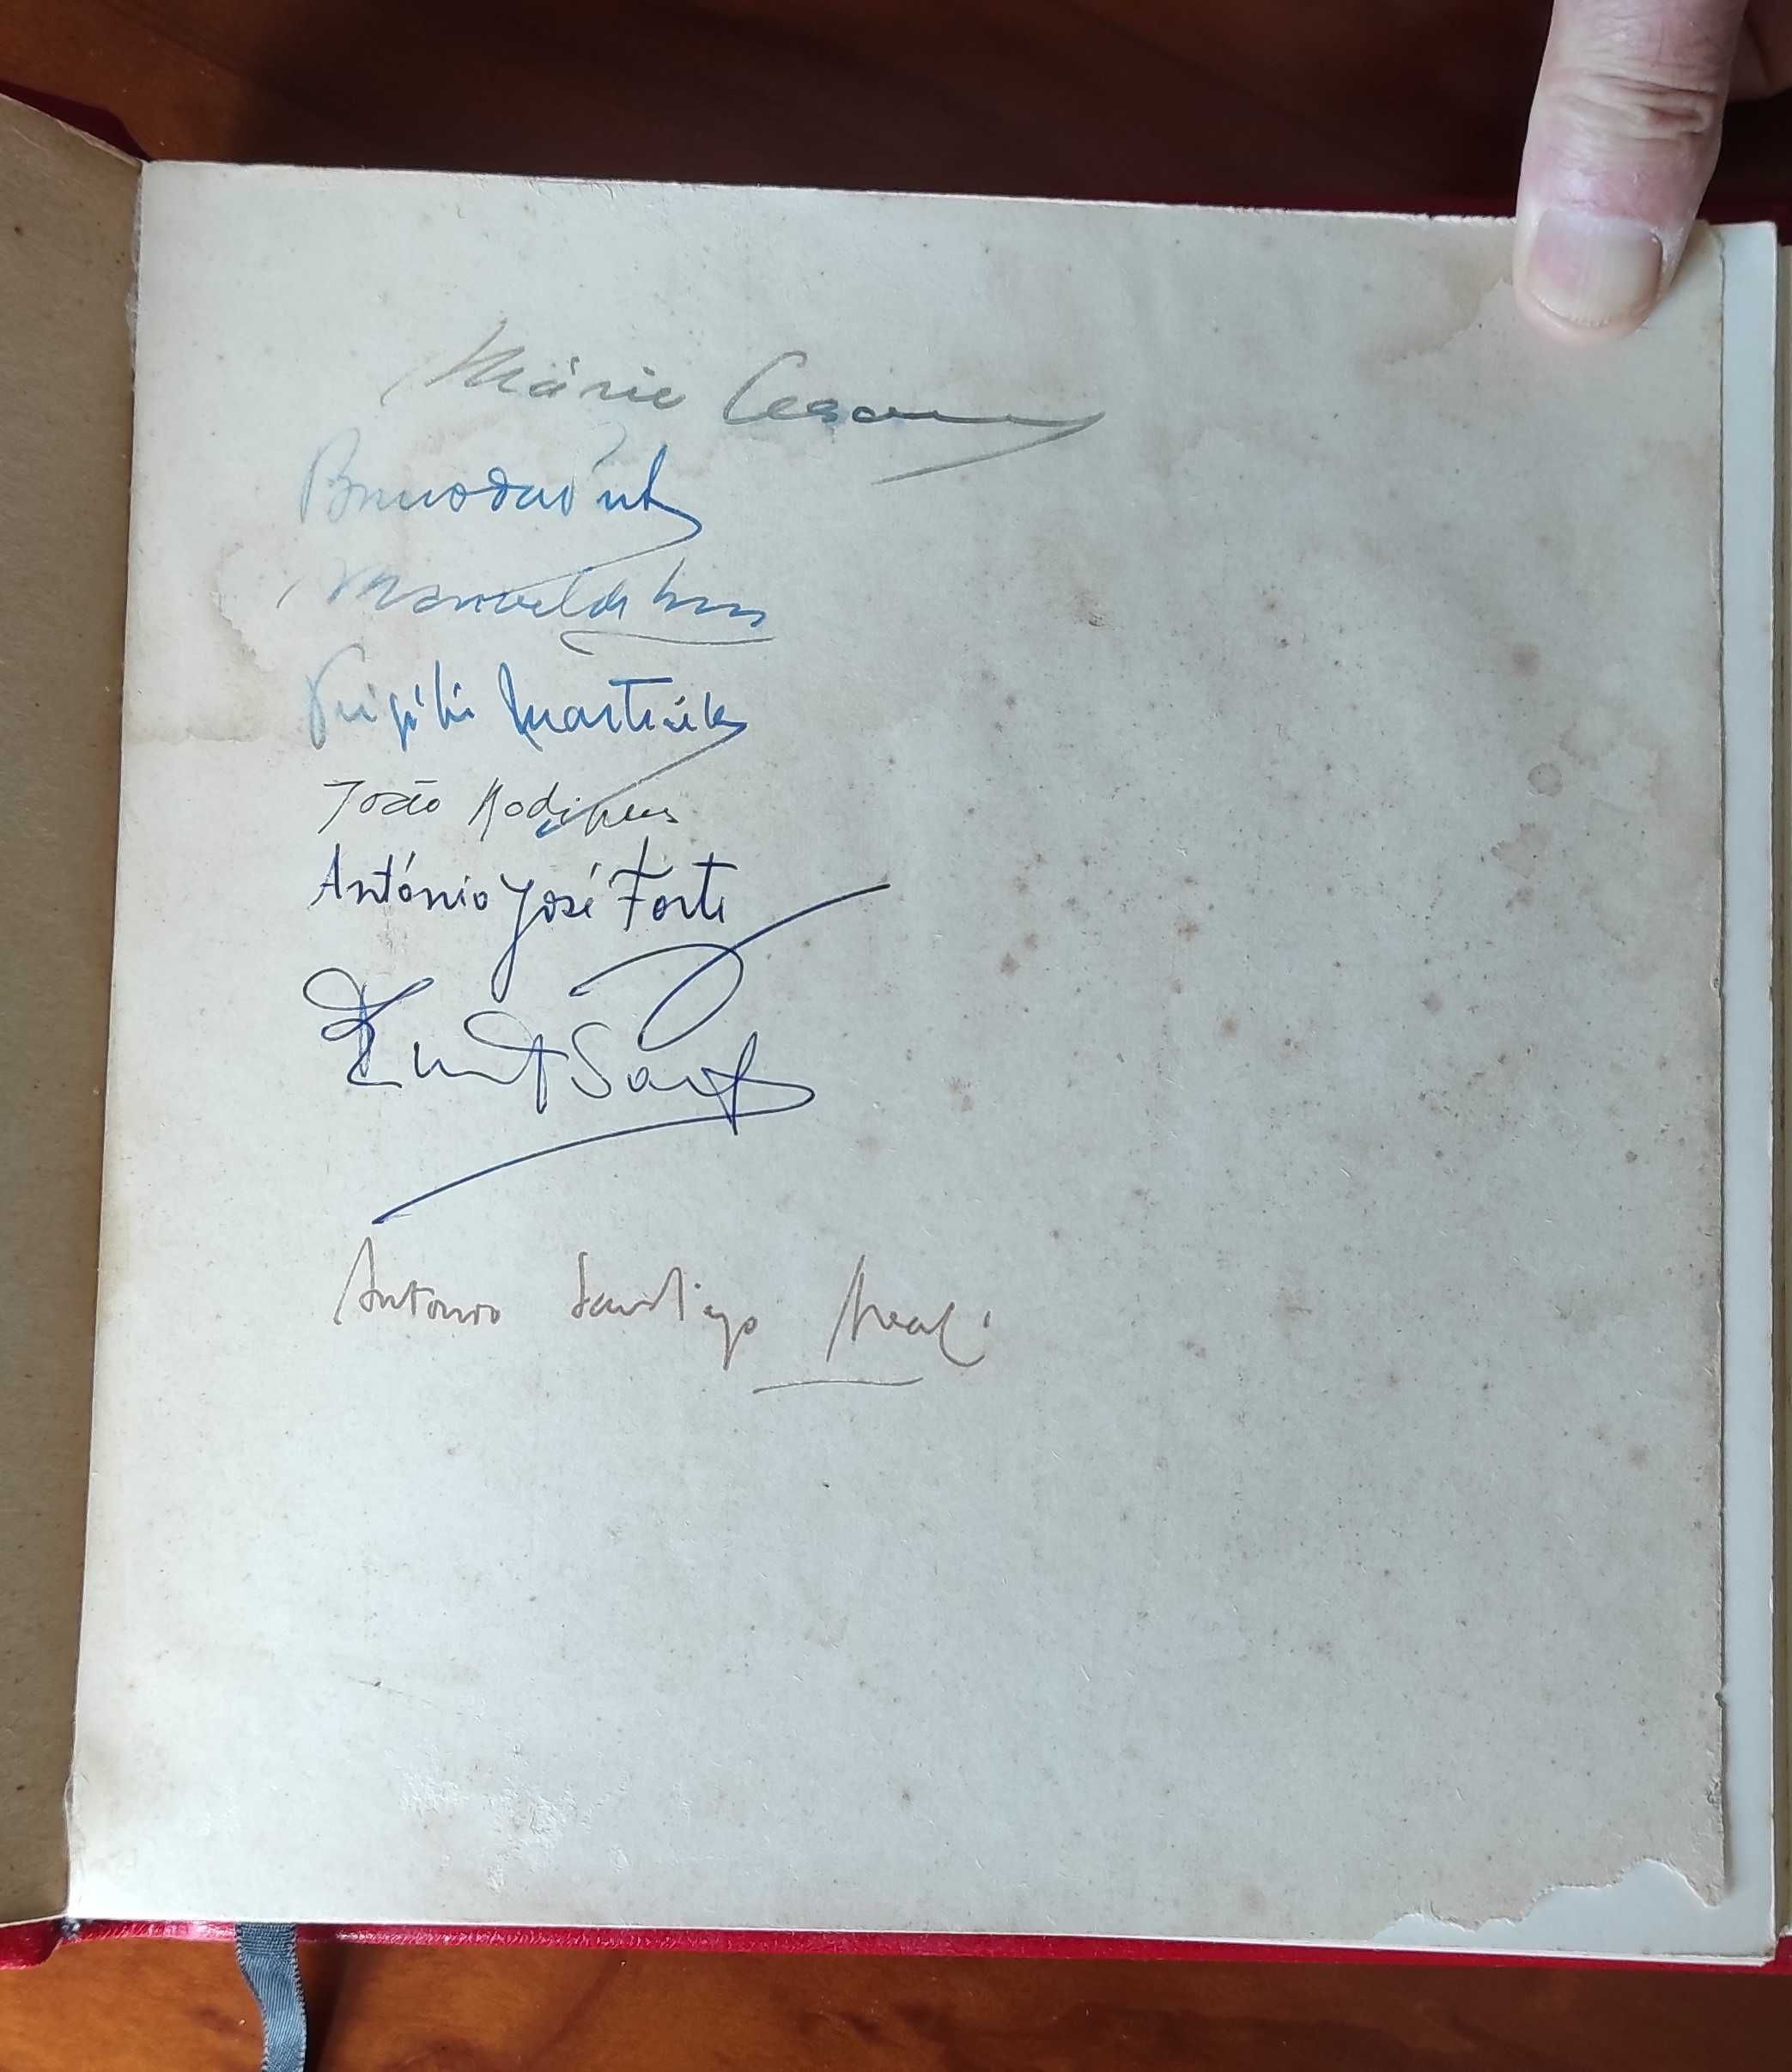 Mário Cesariny
Bruno da Ponte
Manuel de Lima
Virgílio Martinho
João Rodrigues
António José Forte
Ernesto Sampaio
Antonio Santiago Areal